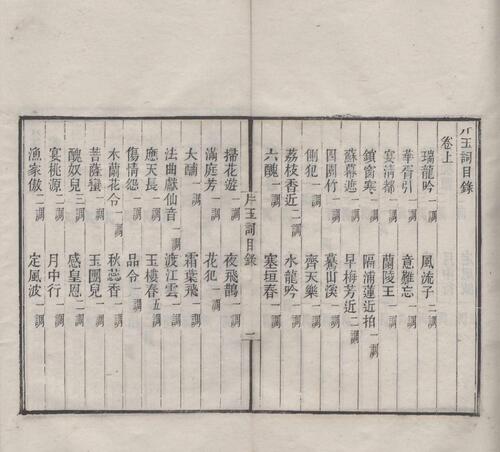 片玉詞目錄
卷上
瑞龍吟一調　風流子二調
華胥引一調　意難忘一調
宴清都一調　蘭陵王一調
鎖窗寒一調　隔浦蓮近拍一調
蘇幕遮一調　早梅芳近二調
四園竹一調　驀山溪調
側犯一調　齊天樂一調
荔枝香近二調　水龍吟一調
六醜一調　塞垣春一調
片玉詞目錄　一
掃花遊一調　夜飛鵲一調
滿庭芳一調　花犯一調
大酺一調　霜葉飛一調
法曲獻仙音一調　渡江雲一調
應天長一調　玉樓春五調
傷情怨一調　品令一調
木蘭花令一調　秋蕊香一調
菩薩蠻一調　玉團兒一調
醜奴兒三調　感皇恩一調
宴桃源二調　月中行一調
漁家傲二調　定風波一調